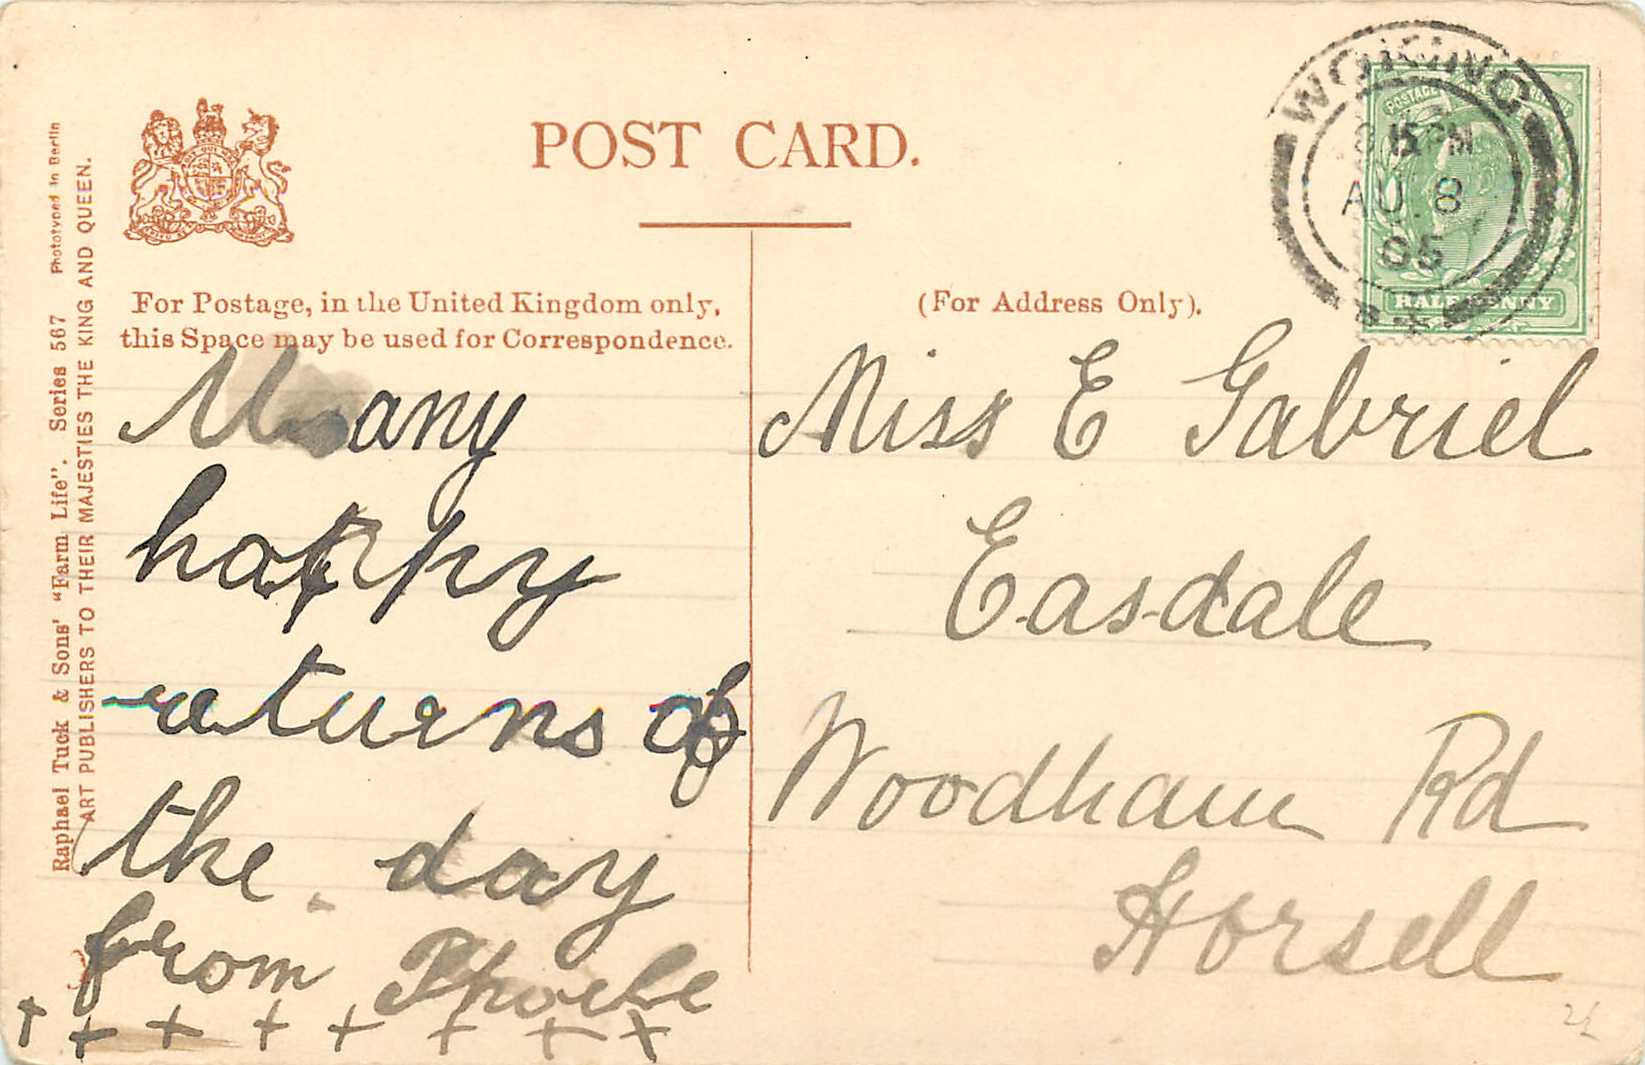 POST CARD.
For Postage, in the United Kingdom only,
this Space may be used for Correspondence.
(For Address Only).
WOKING
8.15PM
AU. 8
05
POSTAGE
HALFPENNY
Many
happy
returns of
the day
from Phoebe
Miss E Gabriel
Easdale
Woodham Rd
Horsell
Raphael Tuck & Sons' "Farm Life". Series 567 Phototyped in Berlin
ART PUBLISHERS TO THEIR MAJESTIES THE KING AND QUEEN.